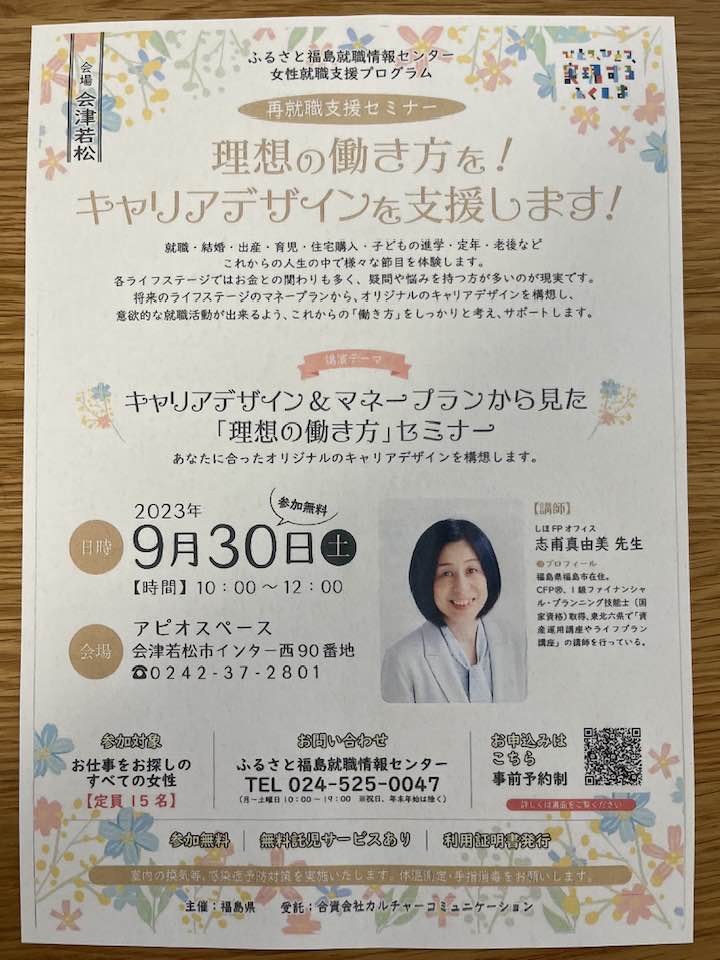 会場 会津若松
ふるさと福島就職情報センター
女性就職支援プログラム
ひとつ、ひとつ、
実現する
ふくしま
再就職支援セミナー
理想の働き方を!
キャリアデザインを支援します!
就職・結婚・出産・育児・住宅購入・子どもの進学・定年・老後など
これからの人生の中で様々な節目を体験します。
各ライフステージではお金との関わりも多く、疑問や悩みを持つ方が多いのが現実です。
将来のライフステージのマネープランから、オリジナルのキャリアデザインを構想し、
意欲的な就職活動が出来るよう、これからの「働き方」をしっかりと考え、サポートします。
講演テーマ
キャリアデザイン&マネープランから見た
「理想の働き方」セミナー
あなたに合ったオリジナルのキャリアデザインを構想します。
日時
2023年
9月30日土
参加無料
【時間】10:00~12:00
会場
アピオスペース
会津若松市インター西90番地
☎0242-37-2801
【講師】
しほFPオフィス
志甫真由美 先生
プロフィール
福島県福島市在住。
CFP®、1級ファイナンシャ
ル・プランニング技能士(国
家資格)取得、東北六県で「資
産運用講座やライフプラン
講座」の講師を行っている。
参加対象
お仕事をお探しの
すべての女性
【定員15名】
お問い合わせ
ふるさと福島就職情報センター
TEL 024-525-0047
(月~土曜日10:00~19:00 ※祝日、年末年始は除く)
お申込みは
こちら
事前予約制
詳しくは裏面をご覧ください
参加無料 無料託児サービスあり 利用証明書発行
室内の換気等、感染症予防対策を実施いたします。体温測定・手指消毒をお願いします。
主催:福島県 受託:合資会社カルチャーコミュニケーション